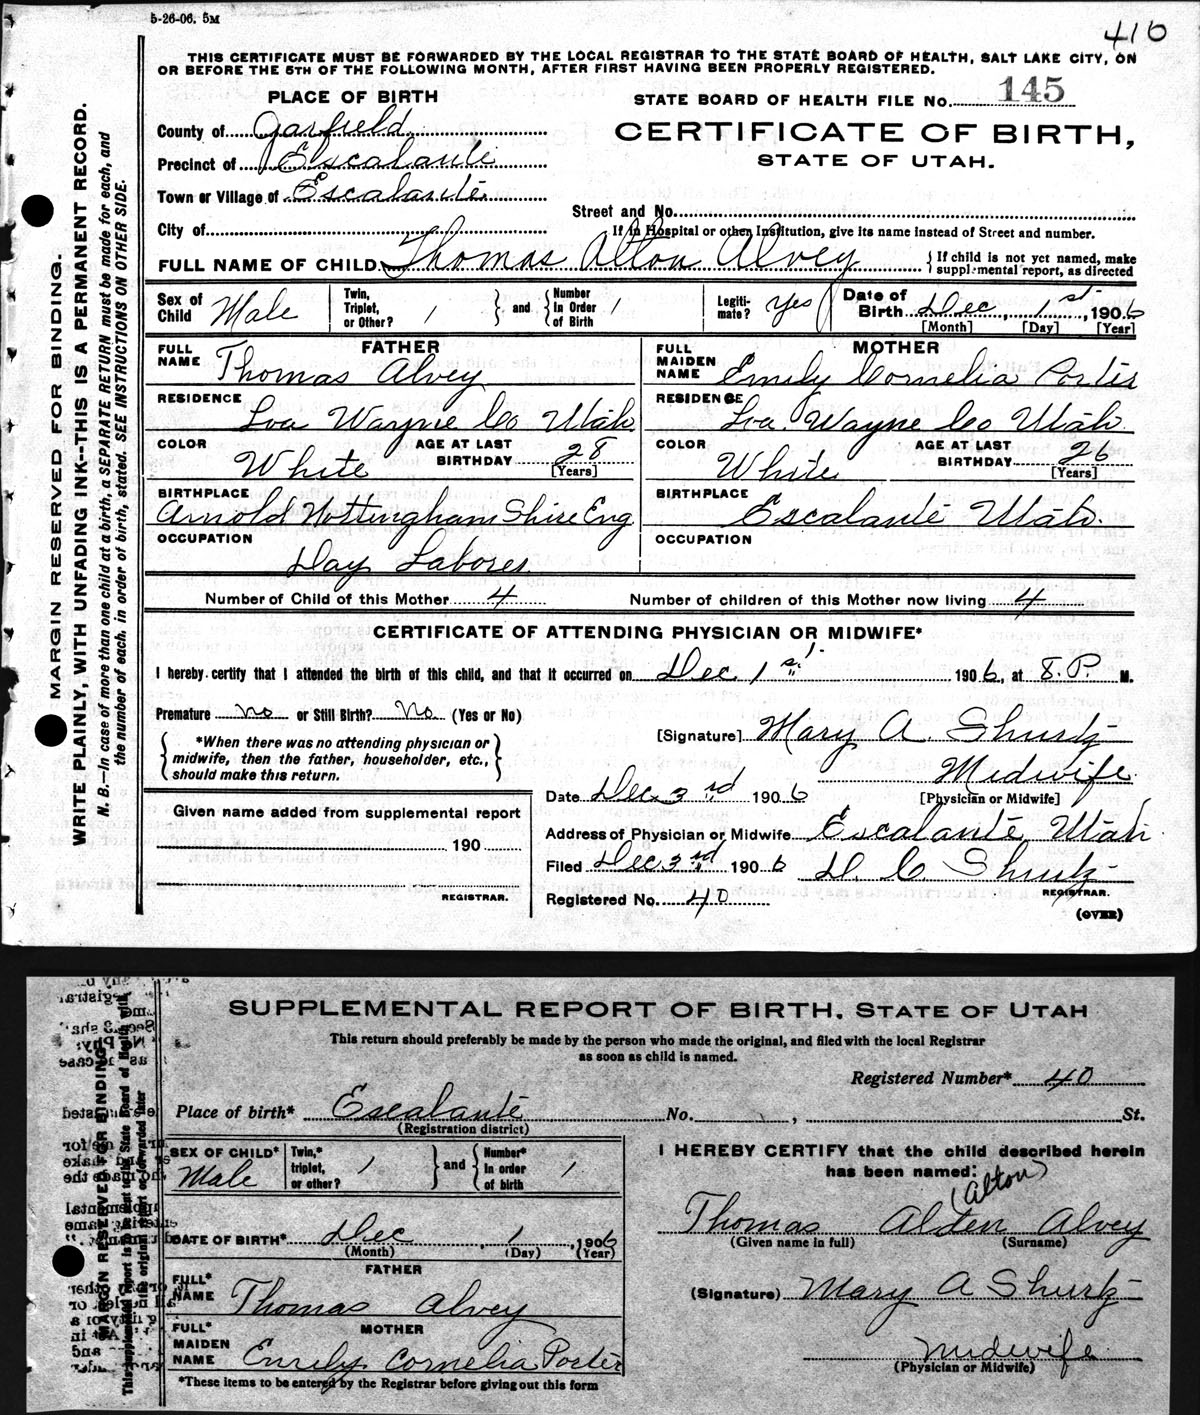 5-26-06. 5M
416
THIS CERTIFICATE MUST BE FORWARDED BY THE LOCAL REGISTRAR TO THE STATE BOARD OF HEALTH, SALT LAKE CITY, ON
OR BEFORE THE 5TH OF THE FOLLOWING MONTH, AFTER FIRST HAVING BEEN PROPERLY REGISTERED.
MARGIN RESERVED FOR BINDING.
WRITE PLAINLY, WITH UNFADING INK--THIS IS A PERMANENT RECORD.
N. B.—In case of more than one child at a birth, a SEPARATE RETURN must be made for each, and
the number of each, in order of birth, stated. SEE INSTRUCTIONS ON OTHER SIDE.
PLACE OF BIRTH
STATE BOARD OF HEALTH FILE No. 145
County of Garfield
CERTIFICATE OF BIRTH,
STATE OF UTAH.
Precinct of Escalante
Town or Village of Escalante
Street and No.
City of
If in Hospital or other Institution, give its name instead of Street and number.
FULL NAME OF CHILD Thomas Alton Alvey
If child is not yet named, make
supplemental report, as directed
Sex of Child Male
Twin, Triplet, or Other? 1
and
Number in Order of Birth 1
Legiti-mate? Yes
Date of Birth Dec 1st, 1906
[Month] [Day] [Year]
FATHER
FULL NAME Thomas Alvey
RESIDENCE Loa Wayne Co Utah
COLOR White
AGE AT LAST BIRTHDAY 28
[Years]
BIRTHPLACE
Arnold Nottingham Shire Eng
OCCUPATION
Day Laborer
MOTHER
FULL MAIDEN NAME Emily Cornelia Porter
RESIDENCE Loa Wayne Co Utah
COLOR White
AGE AT LAST BIRTHDAY 26
[Years]
BIRTHPLACE
Escalante Utah.
OCCUPATION
Number of Child of this Mother 4
Number of children of this Mother now living 4
CERTIFICATE OF ATTENDING PHYSICIAN OR MIDWIFE*
I hereby certify that I attended the birth of this child, and that it occurred on Dec 1st 1906, at 8. P. M.
Premature no or Still Birth? No (Yes or No)
*When there was no attending physician or
midwife, then the father, householder, etc.,
should make this return.
[Signature] Mary A. Shurtz
Midwife
[Physician or Midwife]
Date Dec 3rd 1906
Given name added from supplemental report
190
REGISTRAR.
Address of Physician or Midwife Escalante Utah
Filed Dec 3rd 1906 D. C. Shurtz
REGISTRAR.
Registered No. 40
(OVER)
SUPPLEMENTAL REPORT OF BIRTH, STATE OF UTAH
This return should preferably be made by the person who made the original, and filed with the local Registrar
as soon as child is named.
Registered Number* 40
Place of birth* Escalante No. , St.
(Registration district)
MARGIN RESERVED FOR BINDING
SEX OF CHILD* Male
Twin,* triplet, or other? 1
and
Number* in order of birth 1
DATE OF BIRTH* Dec, 1, 1906
(Month) (Day) (Year)
FATHER
FULL* NAME Thomas Alvey
MOTHER
FULL* MAIDEN NAME Emily Cornelia Porter
*These items to be entered by the Registrar before giving out this form
I HEREBY CERTIFY that the child described herein
has been named:
(Alton)
Thomas Alden Alvey
(Given name in full) (Surname)
(Signature) Mary A Shurtz
Midwife
(Physician or Midwife)